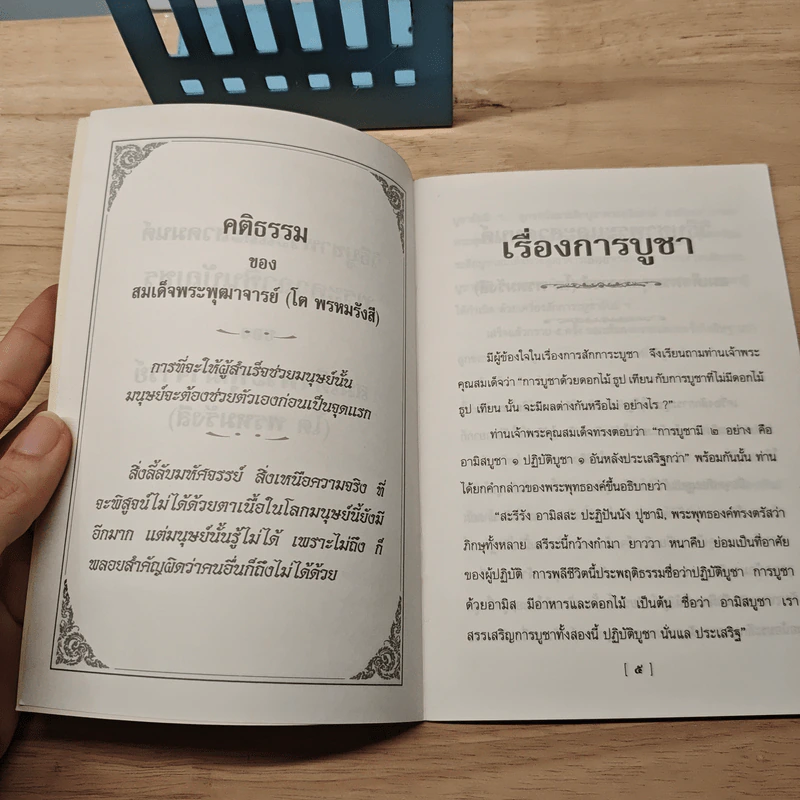 คติธรรม
ของ
สมเด็จพระพุฒาจารย์ (โต พรหมรังสี)
การที่จะให้ผู้สำเร็จช่วยมนุษย์นั้น
มนุษย์จะต้องช่วยตัวเองก่อนเป็นจุดแรก
สิ่งลี้ลับมหัศจรรย์ สิ่งเหนือความจริง ที่
จะพิสูจน์ไม่ได้ด้วยตาเนื้อในโลกมนุษย์นี้ยังมี
อีกมาก แต่มนุษย์นั้นรู้ไม่ได้ เพราะไม่ถึง ก็
พลอยสำคัญผิดว่าคนอื่นก็ถึงไม่ได้ด้วย
เรื่องการบูชา
มีผู้ข้องใจในเรื่องการสักการะบูชา จึงเรียนถามท่านเจ้าพระ
คุณสมเด็จว่า “การบูชาด้วยดอกไม้ ธูป เทียน กับการบูชาที่ไม่มีดอกไม้
ธูป เทียน นั้น จะมีผลต่างกันหรือไม่ อย่างไร ?”
ท่านเจ้าพระคุณสมเด็จทรงตอบว่า “การบูชามี ๒ อย่าง คือ
อามิสบูชา ๑ ปฏิบัติบูชา ๑ อันหลังประเสริฐกว่า” พร้อมกันนั้น ท่าน
ได้ยกคำกล่าวของพระพุทธองค์ขึ้นอธิบายว่า
“สะรีรัง อามิสสะ ปะฏิปันนัง ปูชามิ, พระพุทธองค์ทรงตรัสว่า
ภิกษุทั้งหลาย สรีระนี้กว้างกำมา ยาววา หนาคืบ ย่อมเป็นที่อาศัย
ของผู้ปฏิบัติ การพลีชีวิตนี้ประพฤติธรรมชื่อว่าปฏิบัติบูชา การบูชา
ด้วยอามิส มีอาหารและดอกไม้ เป็นต้น ชื่อว่า อามิสบูชา เรา
สรรเสริญการบูชาทั้งสองนี้ ปฏิบัติบูชา นั่นแล ประเสริฐ”
[ ๕ ]